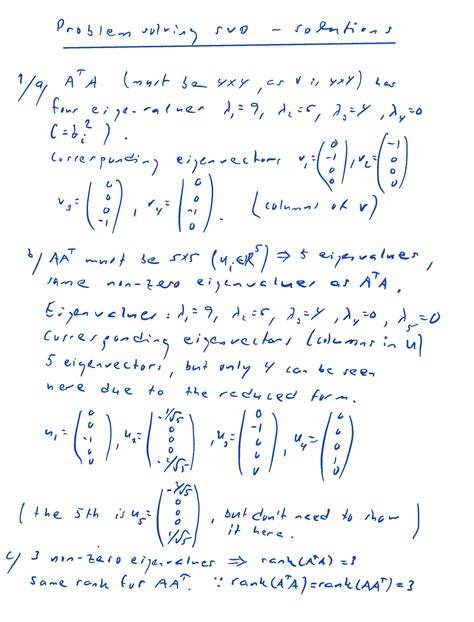 Problem solving SVD - solutions
1/a, AᵀA (must be 4x4, as V is 4x4) has
four eigenvalues λ₁=9, λ₂=5, λ₃=4, λ₄=0
(=σᵢ²).
Corresponding eigenvectors v₁=(0 -1 0 0), v₂=(-1 0 0 0)
v₃=(0 0 0 -1), v₄=(0 0 -1 0). (columns of V)
b/ AAᵀ must be 5x5 (uᵢ∈R⁵) ⇒ 5 eigenvalues,
same non-zero eigenvalues as AᵀA.
Eigenvalues: λ₁=9, λ₂=5, λ₃=4, λ₄=0, λ₅=0
Corresponding eigenvectors (columns in U)
5 eigenvectors, but only 4 can be seen
here due to the reduced form.
u₁=(0 0 -1 0 0), u₂=(-1/√5 0 0 0 -2/√5), u₃=(0 -1 0 0 0), u₄=(0 0 0 1 0)
(the 5th is u₅=(-2/√5 0 0 0 1/√5), but don't need to show
it here.)
c/ 3 non-zero eigenvalues ⇒ rank(AᵀA)=3
Same rank for AAᵀ. ∵ rank(AᵀA)=rank(AAᵀ)=3